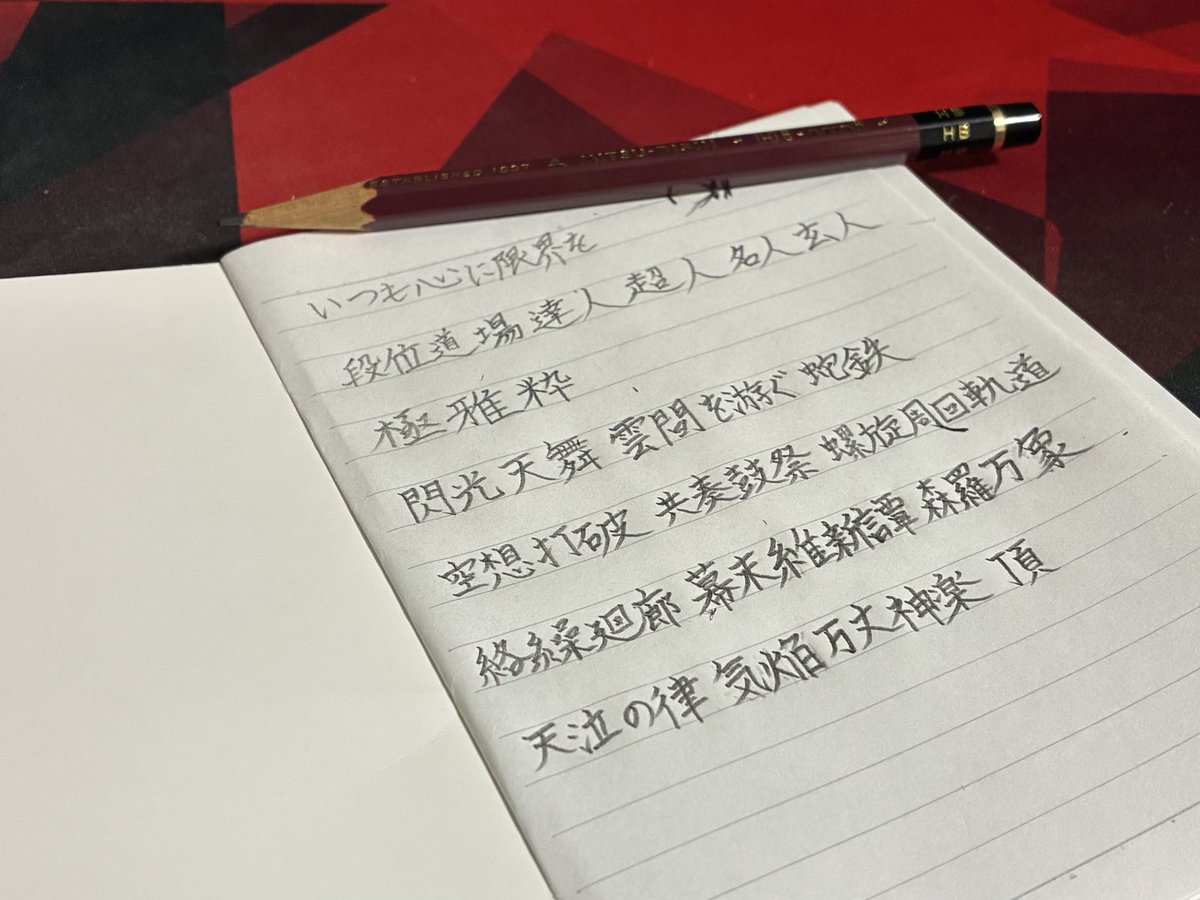 ESTABLISHED 1887 MITSU-BISHI HI-UNI HB
いつも心に限界を
段位道場達人 超人 名人 玄人
極 雅 粋
閃光天舞 雲間を游ぐ蛇鉄
空想打破 共奏鼓祭 螺旋周回軌道
絡繰廻廊 幕末維新譚 森羅万象
天泣の律 気焔万丈神楽 頂